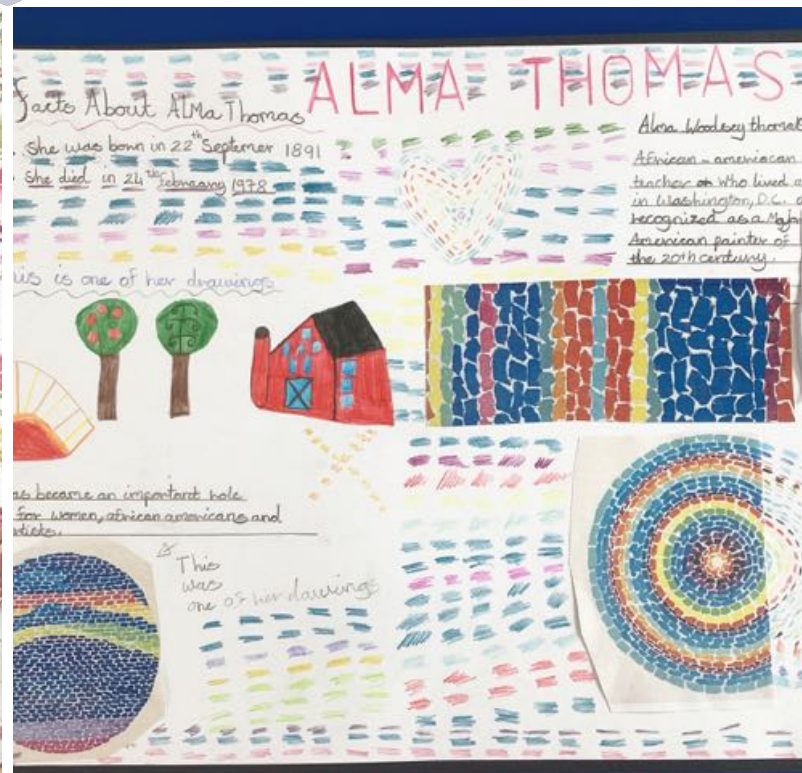 ALMA THOMAS
facts About ALMa Thomas
. she was born in 22th Septemer 1891
. she died in 24th february 1978
Alma Woodsey thomas
African - ameriacan
teacher who lived
in Washington, D.C.
recognized as a Major
American painter of
the 20th century.
his is one of her drawings
as became an important role
for women, african americans and
This
was
one of her drawings